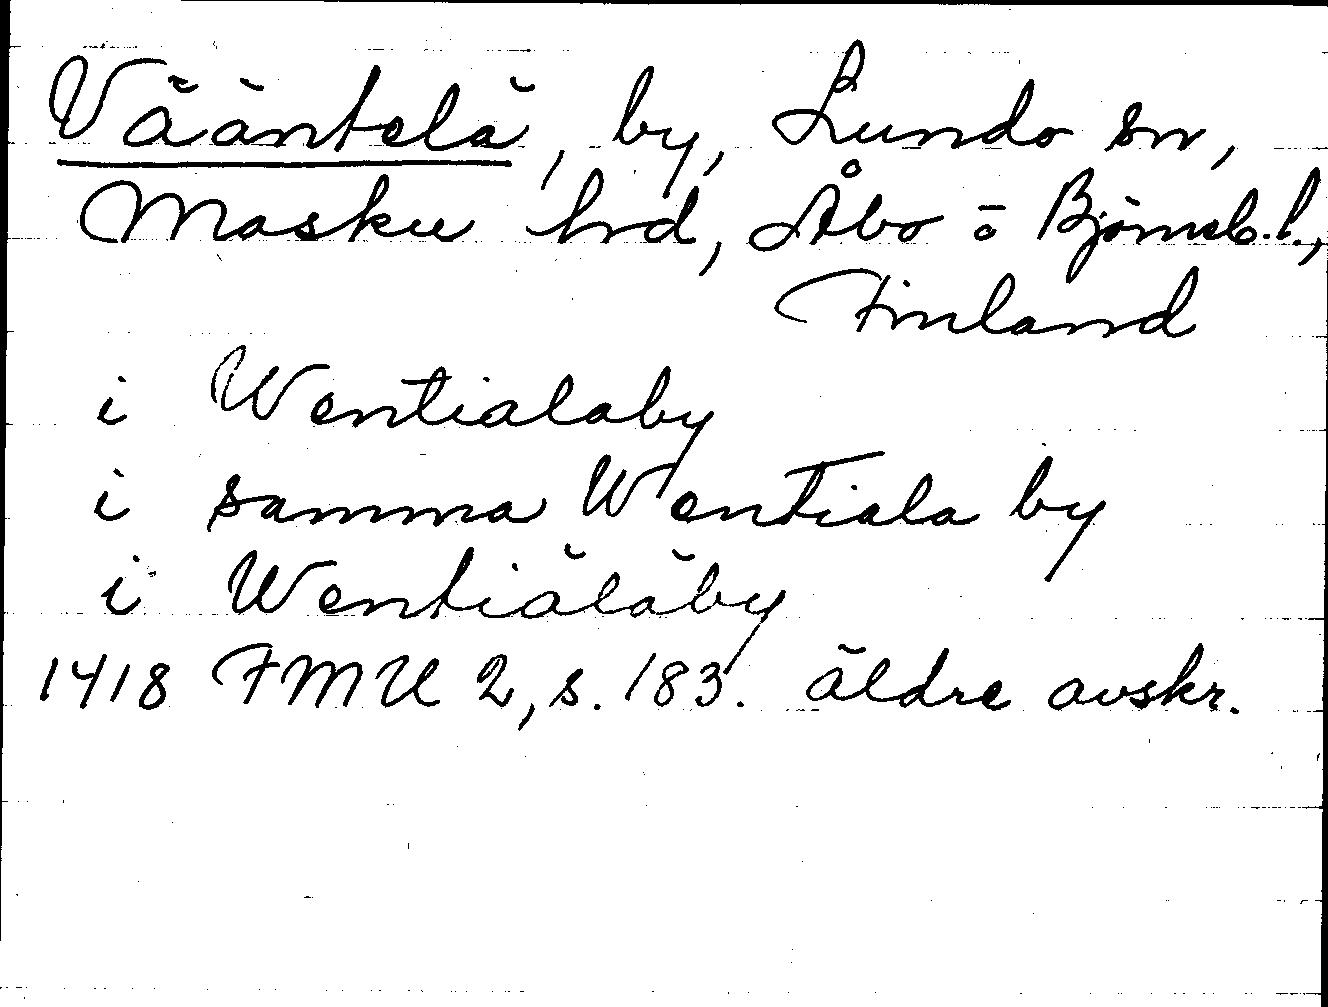 Vääntelä, by, Lundo sn,
Masku hrd, Åbo o Björneb. l.,
Finland
i Wentialaby
i samma Wentiala by
i Wentiäläby
1418 FMU 2, s. 183. äldre avskr.